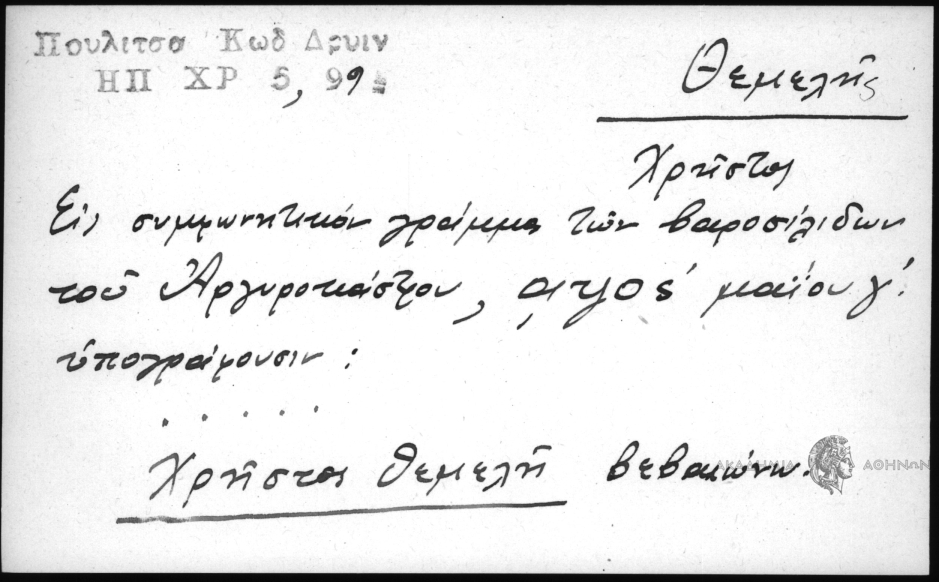 Πουλιτσα Κωδ Δρυιν
ΗΠ ΧΡ 5, 99
Θεμελῆς
Χρῆστος
Εἰς συμφωνητικὸν γράμμα τῶν βαροσίλιδων
τοῦ Ἀργυροκάστρου, ͵αψοϛ´ μαΐου γ´.
ὑπογράφουσιν :
. . . . .
Χρῆστος Θεμελῆ βεβαιώνω.
ΑΚΑΔΗΜΙΑ ΑΘΗΝΩΝ